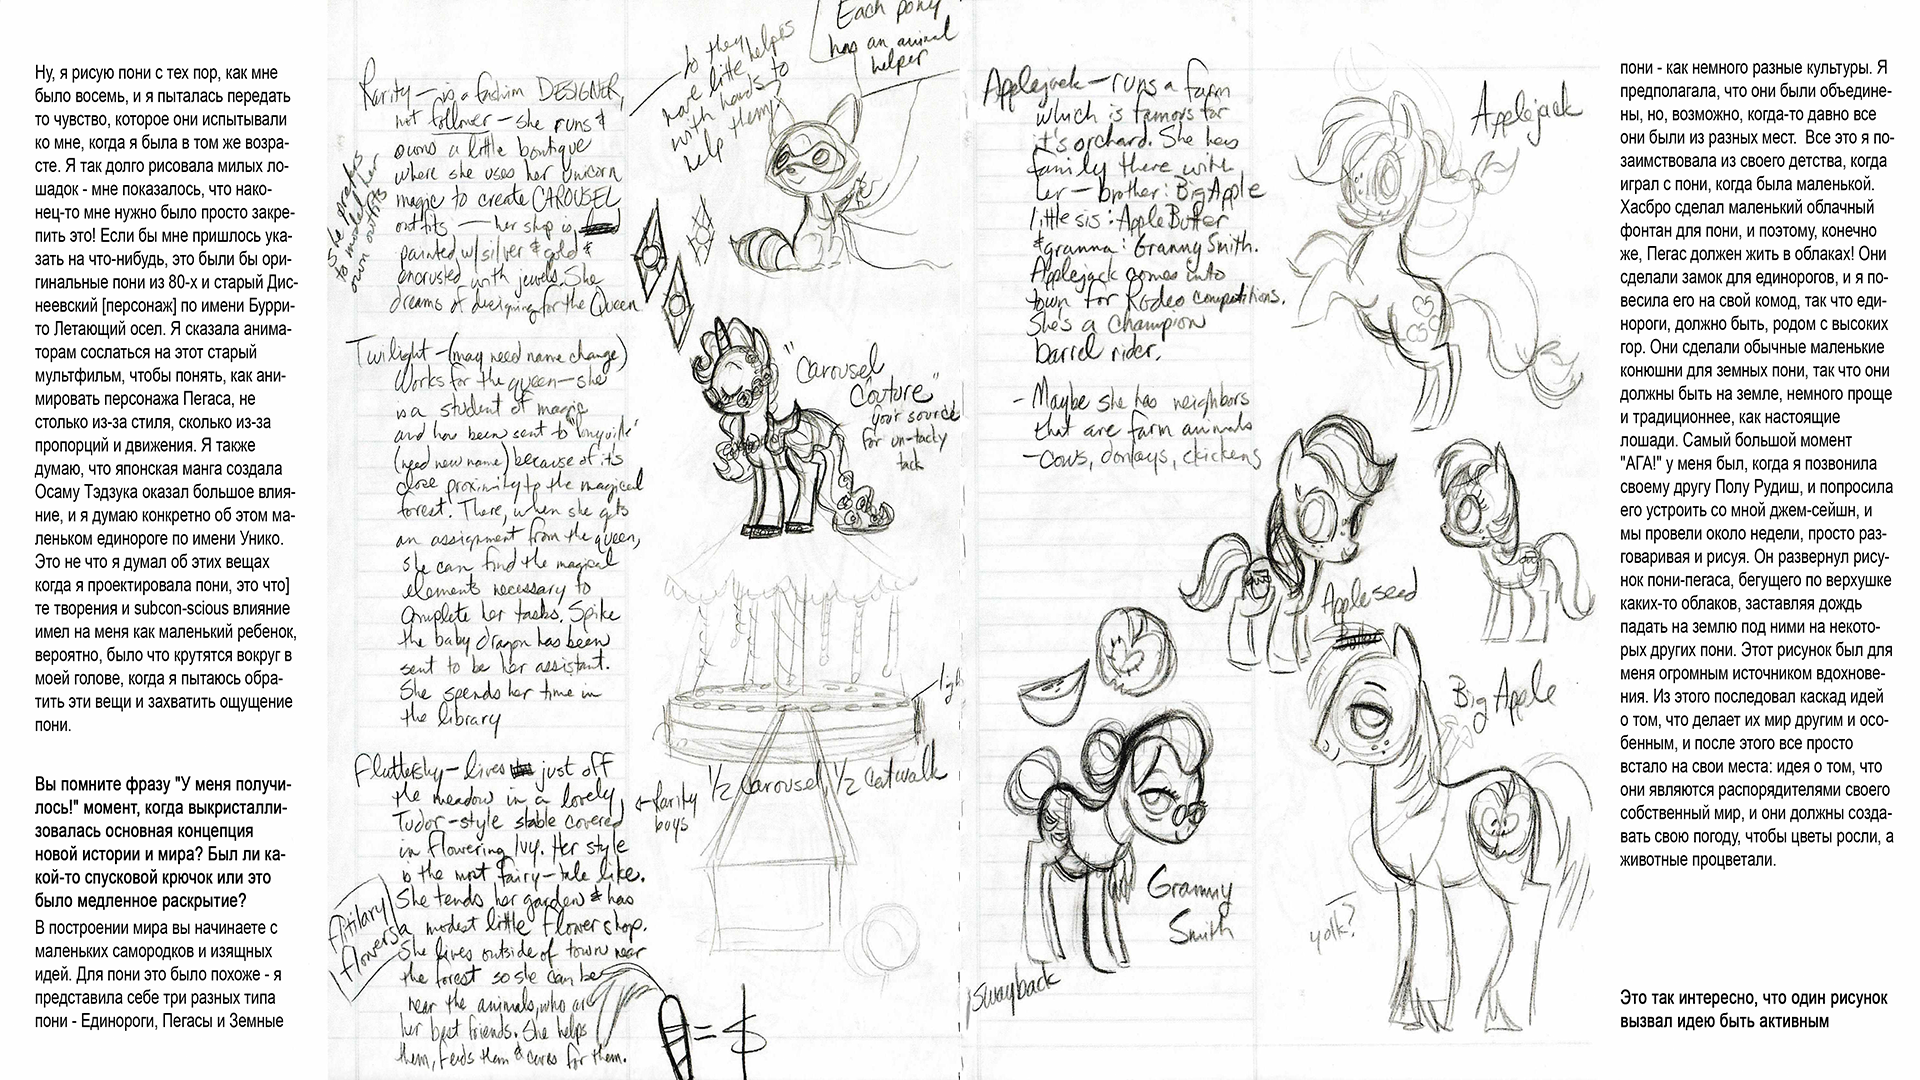 Ну, я рисую пони с тех пор, как мне
было восемь, и я пыталась передать
то чувство, которое они испытывали
ко мне, когда я была в том же возра-
сте. Я так долго рисовала милых ло-
шадок - мне показалось, что нако-
нец-то мне нужно было просто закре-
пить это! Если бы мне пришлось ука-
зать на что-нибудь, это были бы ори-
гинальные пони из 80-х и старый Дис-
неевский [персонаж] по имени Бурри-
то Летающий осел. Я сказала анима-
торам сослаться на этот старый
мультфильм, чтобы понять, как ани-
мировать персонажа Пегаса, не
столько из-за стиля, сколько из-за
пропорций и движения. Я также
думаю, что японская манга создала
Осаму Тэдзука оказал большое влия-
ние, и я думаю конкретно об этом ма-
леньком единороге по имени Унико.
Это не что я думал об этих вещах
когда я проектировала пони, это что]
те творения и subcon-scious влияние
имел на меня как маленький ребенок,
вероятно, было что крутятся вокруг в
моей голове, когда я пытаюсь обра-
тить эти вещи и захватить ощущение
пони.
Вы помните фразу "У меня получи-
лось!" момент, когда выкристалли-
зовалась основная концепция
новой истории и мира? Был ли ка-
кой-то спусковой крючок или это
было медленное раскрытие?
В построении мира вы начинаете с
маленьких самородков и изящных
идей. Для пони это было похоже - я
представила себе три разных типа
пони - Единороги, Пегасы и Земные
Rarity — is a fashion DESIGNER,
not follower — she runs &
owns a little boutique
where she uses her unicorn
magic to create CAROUSEL
outfits — her shop is
painted w/ silver & gold &
encrusted with jewels. She
dreams of designing for the Queen
She prefers
to model her
own outfits
so they
have little helpers
with hands to
help them?
Each pony
has an animal
helper
"Carousel
Couture"
your source
for un-tacky
tack
Twilight — (may need name change)
Works for the queen — she
is a student of magic
and has been sent to "Ponyville"
(need new name) because of it's
close proximity to the magical
forest. There, when she gets
an assignment from the queen,
she can find the magical
elements necessary to
complete her tasks. Spike
the baby dragon has been
sent to be her assistant.
She spends her time in
the library
1/2 carousel, 1/2 catwalk
Fluttershy — lives just off
the meadow in a lovely
Tudor-style stable covered
in flowering Ivy. Her style
is the most fairy-tale like.
She tends her garden & has
a modest little flower shop.
She lives outside of town near
the forest so she can be
near the animals, who are
her best friends. She helps
them, feeds them & cares for them.
← Rarity
buys
flowers
= $
Applejack — runs a farm
which is famous for
it's orchard. She has
family there with
her — brother: Big Apple
little sis: Apple Butter
& granna: Granny Smith.
Applejack comes into
town for Rodeo competitions.
She's a champion
barrel rider.
- Maybe she has neighbors
that are farm animals
- cows, donkeys, chickens
Applejack
Appleseed
Big Apple
Granny
Smith
swayback
yolk?
пони - как немного разные культуры. Я
предполагала, что они были объедине-
ны, но, возможно, когда-то давно все
они были из разных мест. Все это я по-
заимствовала из своего детства, когда
играл с пони, когда была маленькой.
Хасбро сделал маленький облачный
фонтан для пони, и поэтому, конечно
же, Пегас должен жить в облаках! Они
сделали замок для единорогов, и я по-
весила его на свой комод, так что еди-
нороги, должно быть, родом с высоких
гор. Они сделали обычные маленькие
конюшни для земных пони, так что они
должны быть на земле, немного проще
и традиционнее, как настоящие
лошади. Самый большой момент
"АГА!" у меня был, когда я позвонила
своему другу Полу Рудиш, и попросила
его устроить со мной джем-сейшн, и
мы провели около недели, просто раз-
говаривая и рисуя. Он развернул рису-
нок пони-пегаса, бегущего по верхушке
каких-то облаков, заставляя дождь
падать на землю под ними на некото-
рых других пони. Этот рисунок был для
меня огромным источником вдохнове-
ния. Из этого последовал каскад идей
о том, что делает их мир другим и осо-
бенным, и после этого все просто
встало на свои места: идея о том, что
они являются распорядителями своего
собственный мир, и они должны созда-
вать свою погоду, чтобы цветы росли, а
животные процветали.
Это так интересно, что один рисунок
вызвал идею быть активным